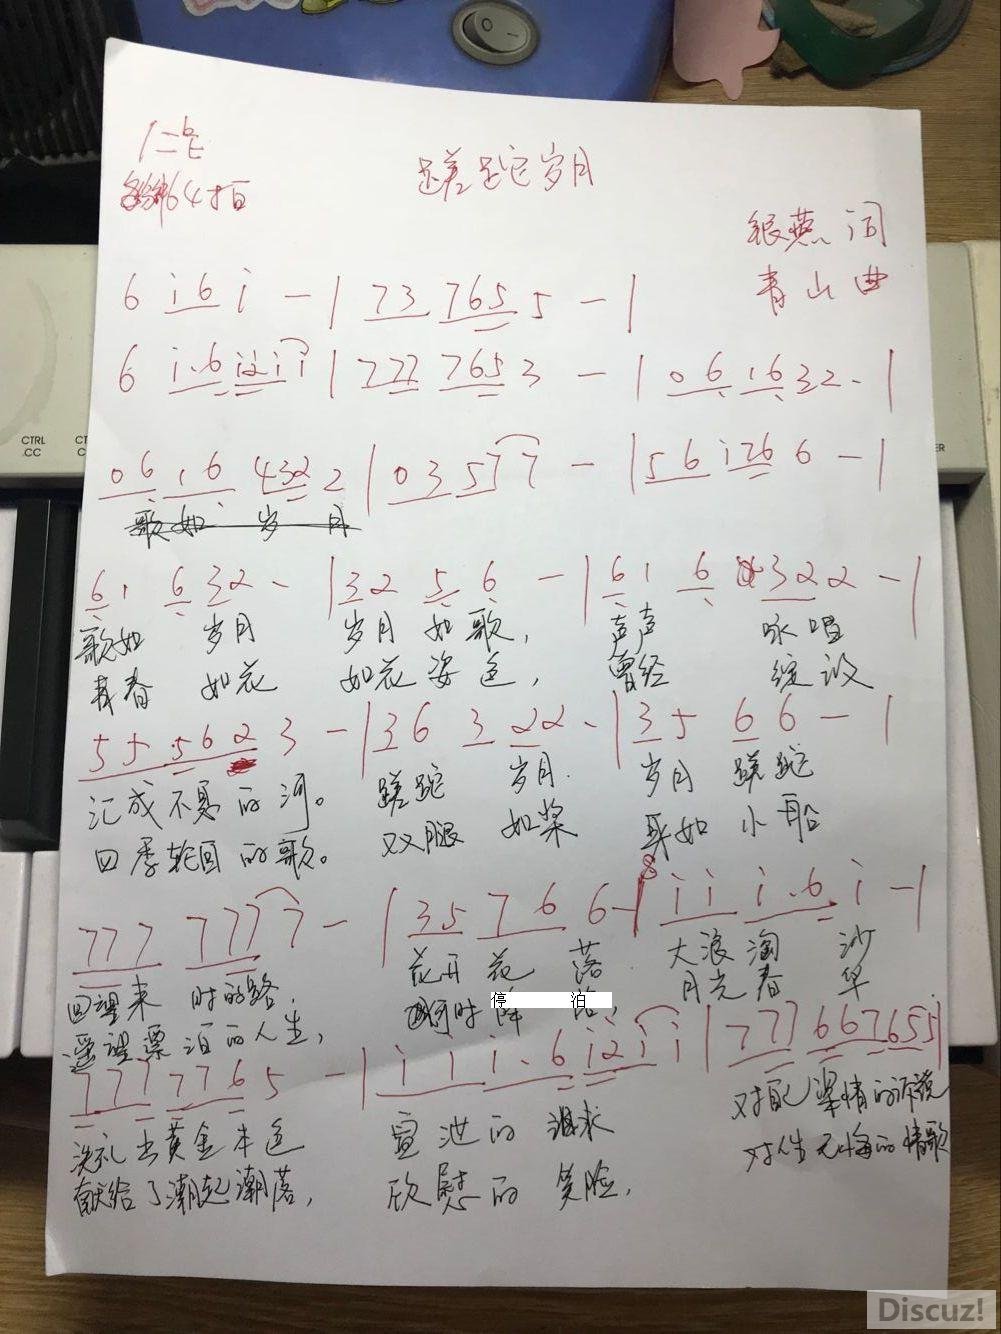 1=♭E
64拍
蹉跎岁月
银燕 词
青山 曲
CTRL
.CC
6 i6 i - | 73 765 5 - |
6 i·6 i2i i | 777 765 3 - | 06 16 32 - |
06 16 432 2 | 03 57 7 - | 56 i76 6 - |
歌如 岁 月
61 6 32 - | 32 5 6 - | 61 6 322 - |
歌如 岁月 岁月 如歌, 声声 咏唱
青春 如花 如花姿色, 曾经 绽放
55 562 3 - | 36 3 22 - | 35 66 - |
汇成不息的河。 蹉跎 岁月. 岁月 蹉跎
四季轮回的歌。 双腿 如桨 身如 小船
777 777 7 - | 35 76 6 - | ii i·6 i - |
回望来 时的路, 花开 花 落 大浪淘 沙
遥望漂泊的人生, 停 泊 月光春 华
777 776 5 - | i i i·6 i2i i | 777 667 655 |
洗礼出黄金本色 宣泄的 对自己 深情的诉说
奉献给了潮起潮落, 欣慰的 笑脸, 对人生 无悔的情歌
Discuz!